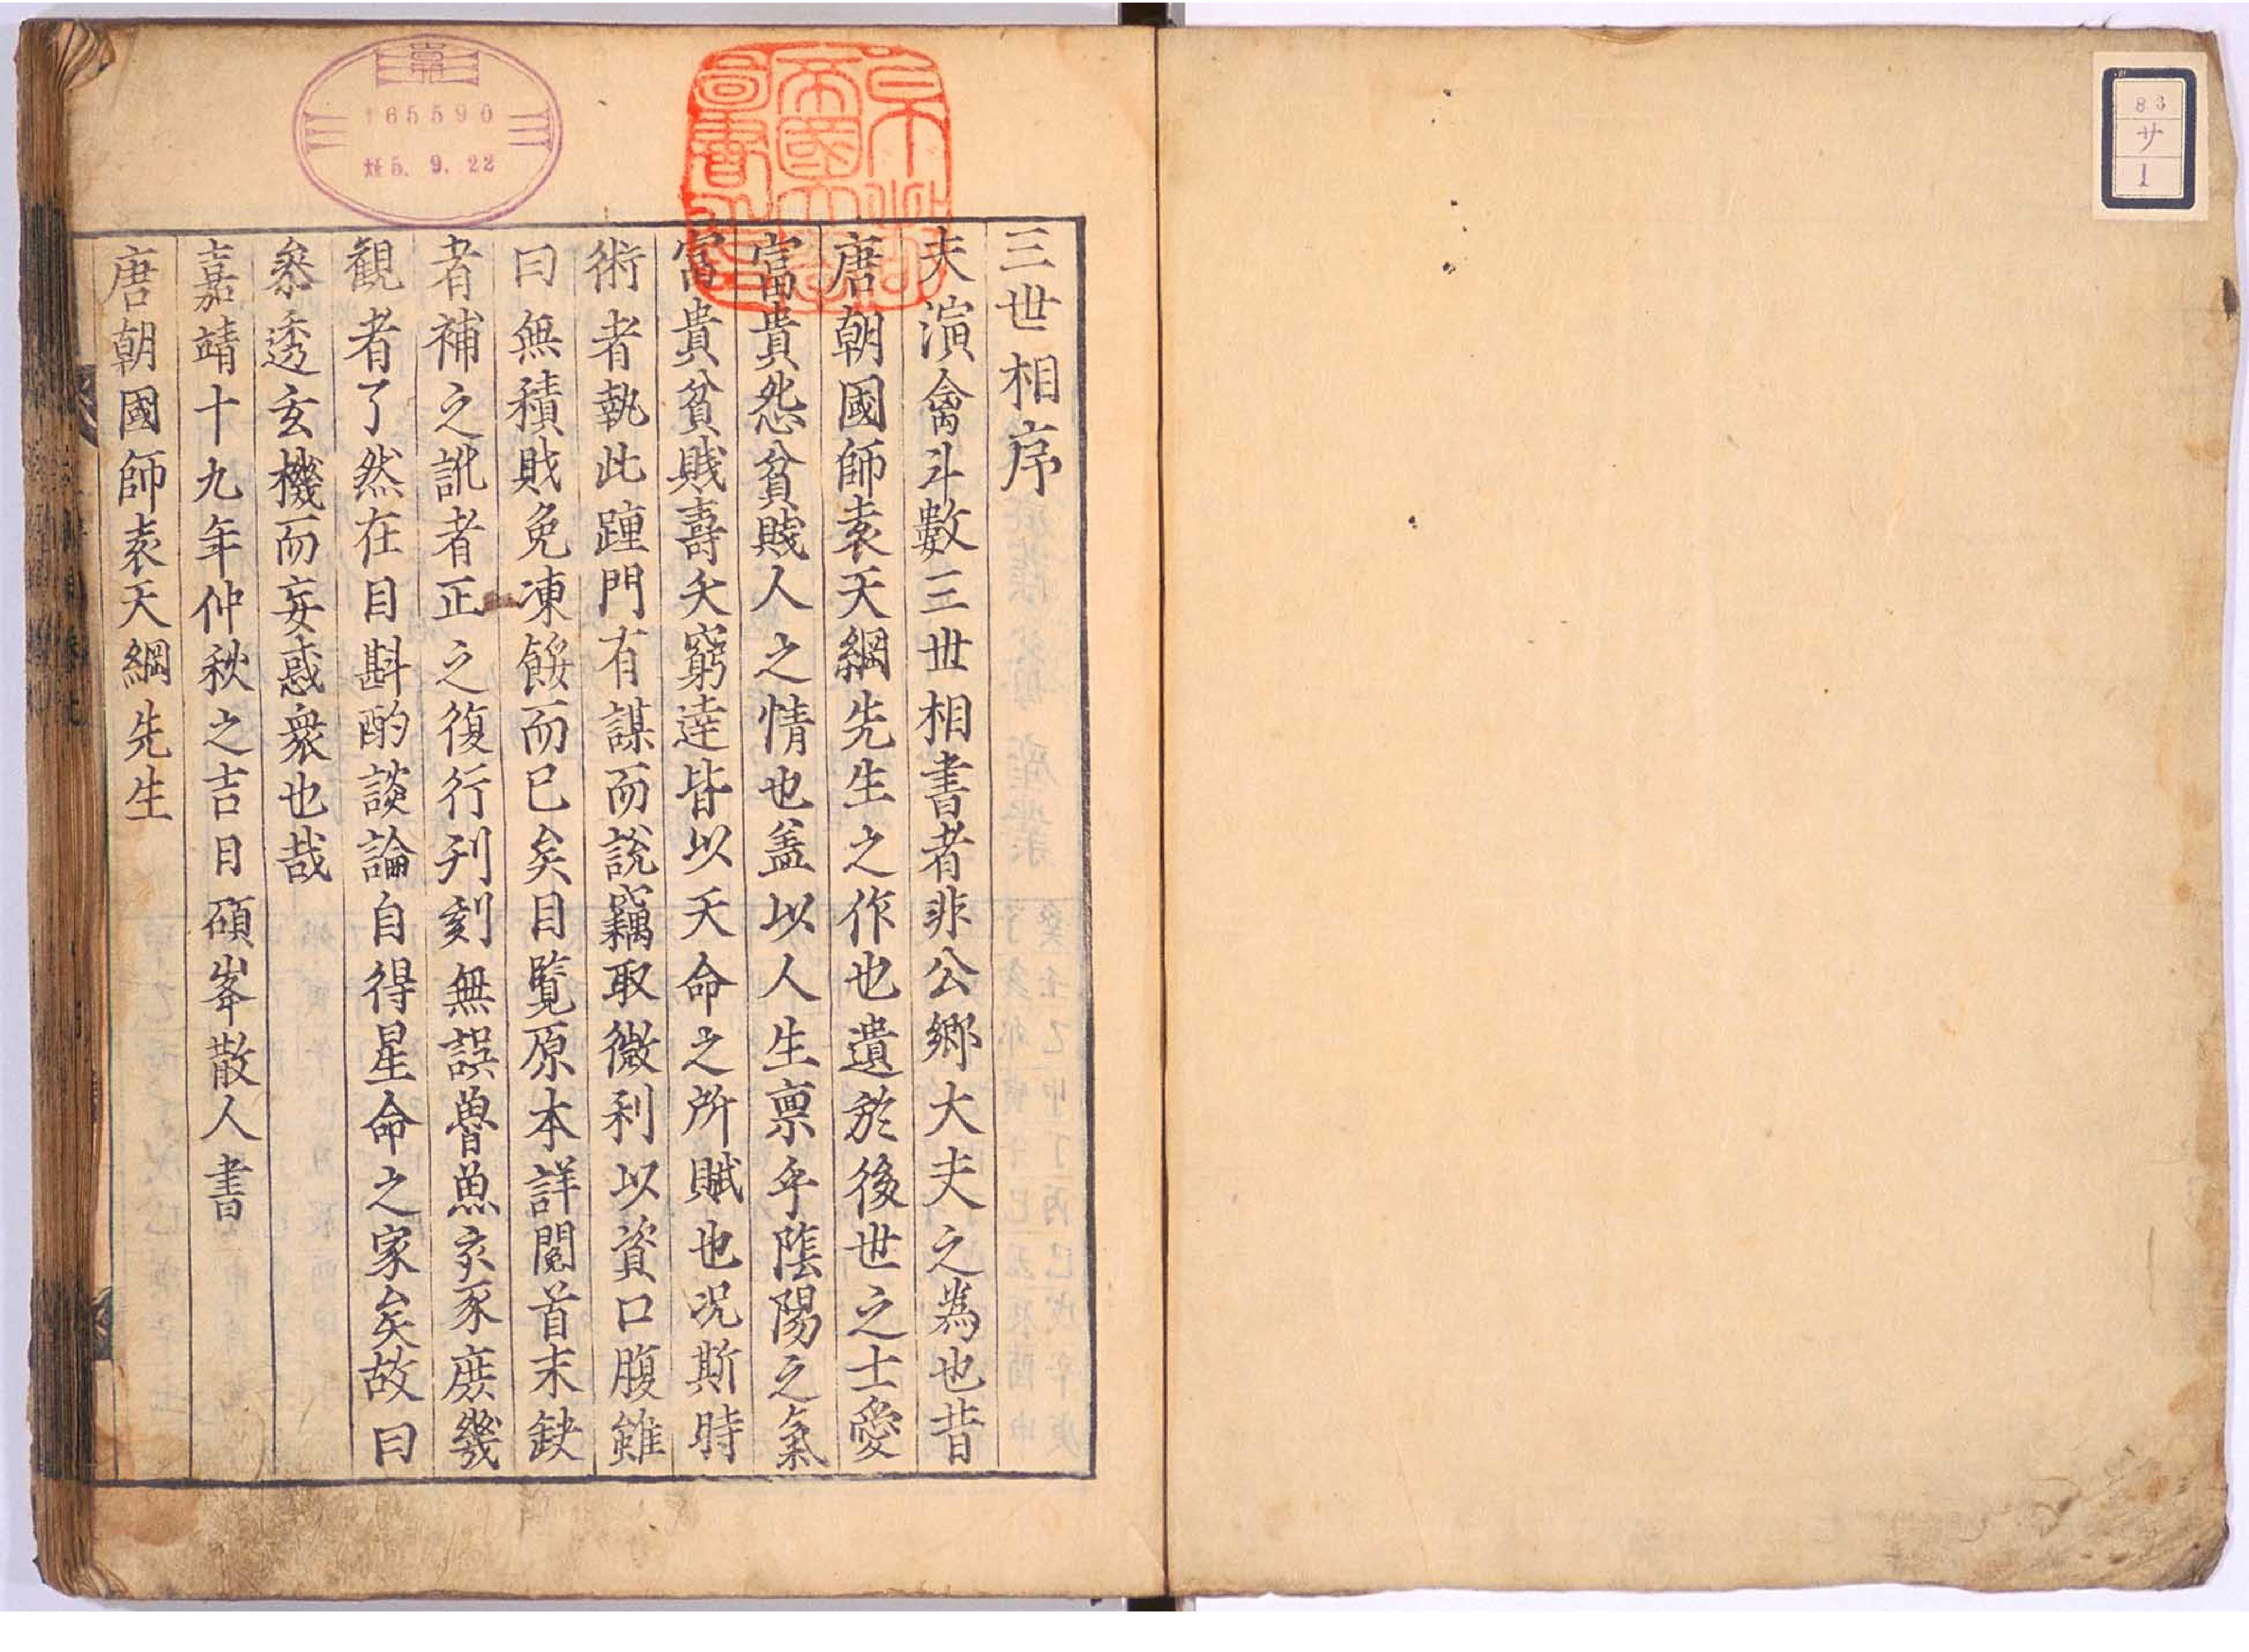 三世相序
夫演禽斗數三世相書者非公鄉大夫之為也昔
唐朝國師袁天綱先生之作也遺於後世之士愛
富貴怨貧賤人之情也盖以人生禀乎隂陽之氣
富貴貧賤壽夭窮達皆以天命之所賦也况斯時
術者執此踵門有謀而說竊取微利以資口腹雖
曰無積財免凍餒而已矣目覧原本詳閱首末缺
者補之訛者正之復行刋刻無誤魯魚亥豕庶幾
観者了然在目斟酌談論自得星命之家矣故曰
叅透玄機而妄惑衆也哉
嘉靖十九年仲秋之吉日碩峯散人書
唐朝國師袁天綱先生
165590
5.9.22
83
サ
1